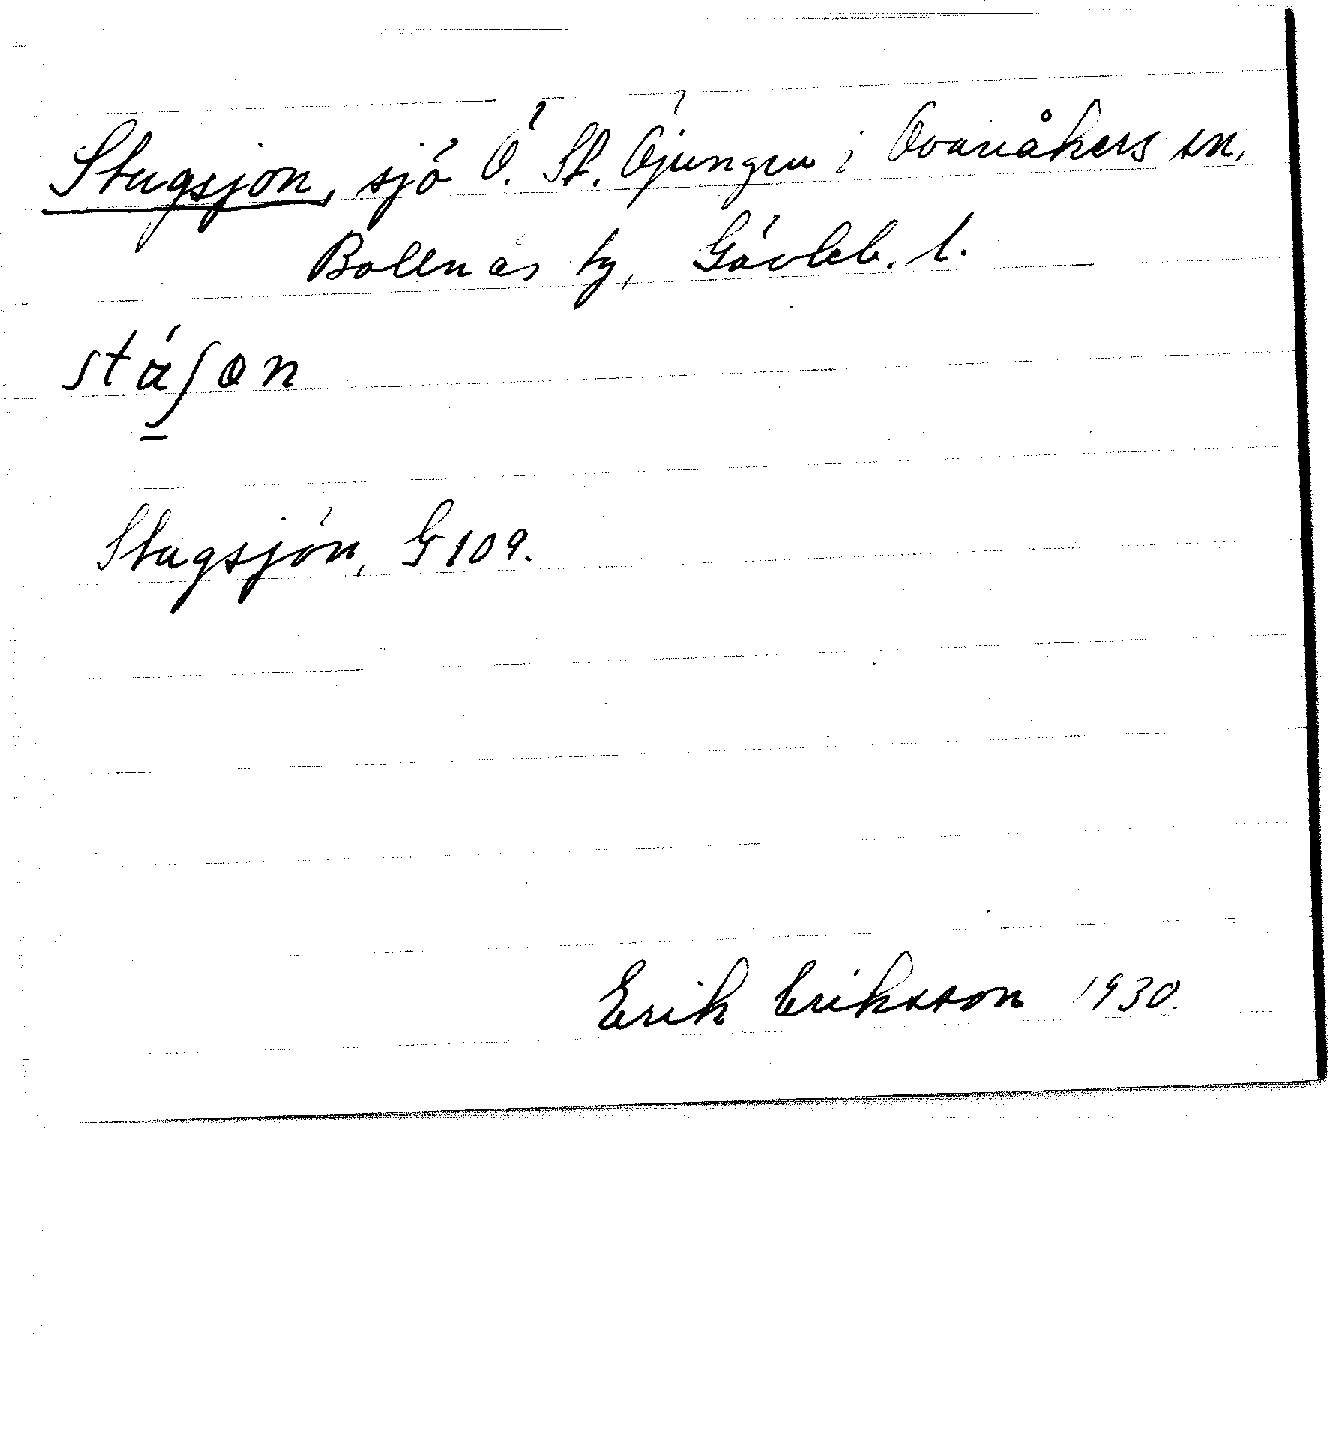 Stugsjön, sjö Ö. St. Öjungen i Ovanåkers sn,
Bollnäs tg, Gävleb. l.
Stugsjön, G 109.
Erik Eriksson 1930.